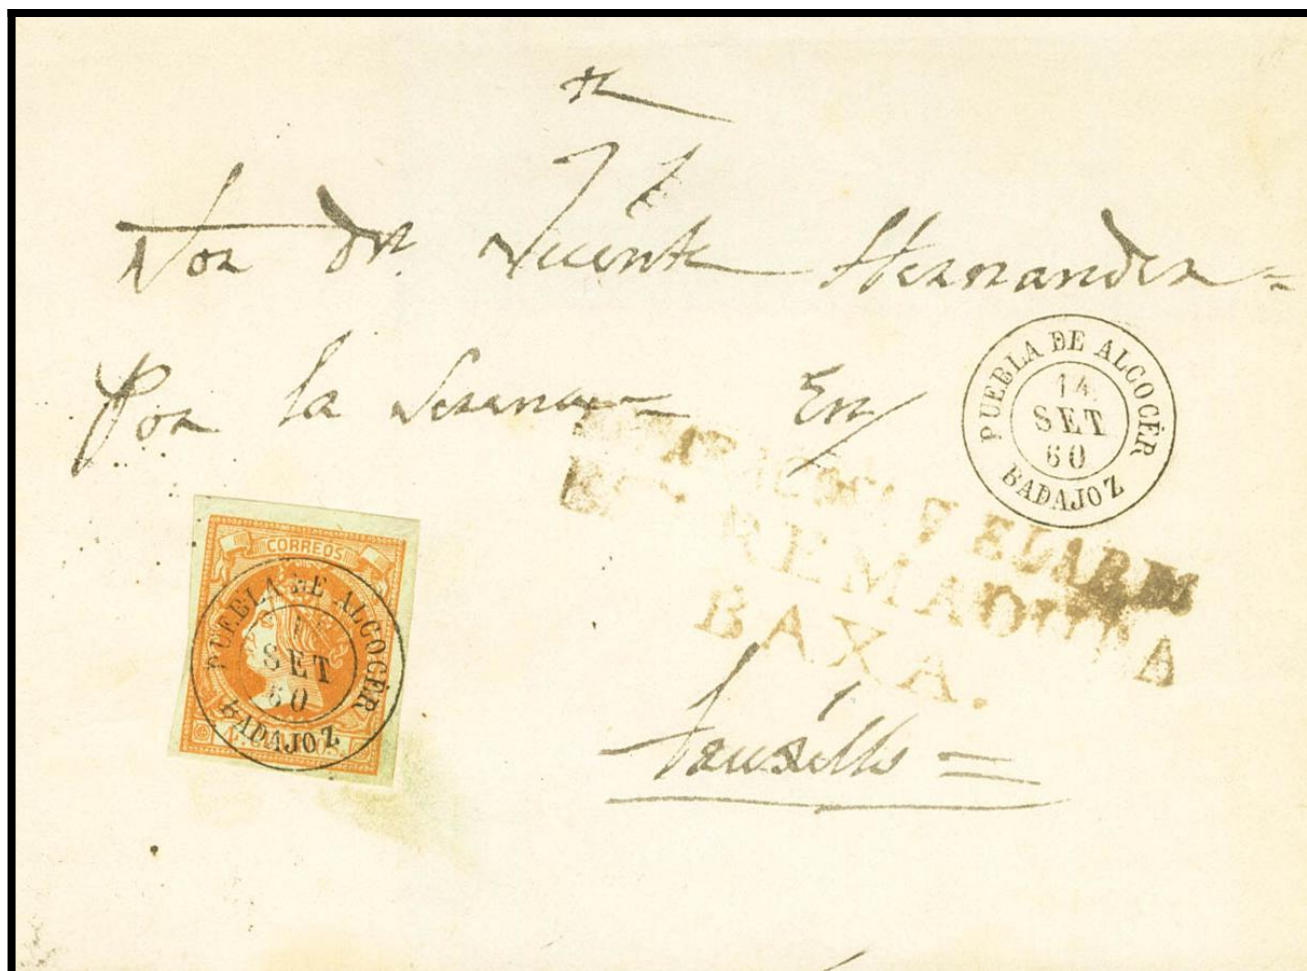 Sor Dn. Vicente Hernandez =
Por la Serena En
PUEBLA DE ALCOCÉR
14
SET
60
BADAJOZ
EXTREMADURA
BAXA.
Truxillo =
CORREOS
PUEBLA DE ALCOCÉR
SET
60
BADAJOZ